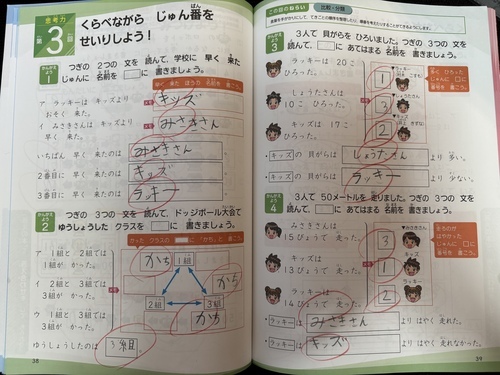 思考力
第3回
くらべながら じゅん番を
せいりしよう！
かんがえよう 1
つぎの 2つの 文を 読んで、学校に 早く 来た
じゅんに 名前を □に 書きましょう。
早く 来た ほうの 名前を 書こう。
ア ラッキーは キッズより
おそく 来た。
キッズ
イ みさきさんは キッズより
早く 来た。
みさきさん
いちばん 早く 来たのは みさきさん
2番目に 早く 来たのは キッズ
3番目に 早く 来たのは ラッキー
かんがえよう 2
つぎの 3つの 文を 読んで、ドッジボール大会で
ゆうしょうした クラスを □に 書きましょう。
かった クラスの □に「かち」と 書こう。
ア 1組と 2組では
1組が かった。
イ 2組と 3組では
3組が かった。
ウ 1組と 3組では
3組が かった。
かち
1組
かち
2組
3組
かち
ゆうしょうしたのは 3組
38
この回のねらい
比較・分類
かんがえよう 3
3人で 貝がらを ひろいました。つぎの 3つの 文を
読んで、□に あてはまる 名前を 書きましょう。
ラッキーは 20こ
ひろった。
1
しょうたさんは
10こ ひろった。
3
キッズは 17こ
ひろった。
2
多く ひろった
じゅんに □に
番号を 書こう。
・キッズの 貝がらは しょうたさん より 多い。
・キッズの 貝がらは ラッキー より 少ない。
かんがえよう 4
3人で 50メートルを 走りました。つぎの 3つの 文を
読んで、□に あてはまる 名前を 書きましょう。
みさきさんは
15びょうで 走った。
みさきさん
3
キッズは
13びょうで 走った。
キッズ
1
ラッキーは
14びょうで 走った。
ラッキー
2
・ラッキーは みさきさん より はやく 走れた。
・ラッキーは キッズ より はやく 走れなかった。
39